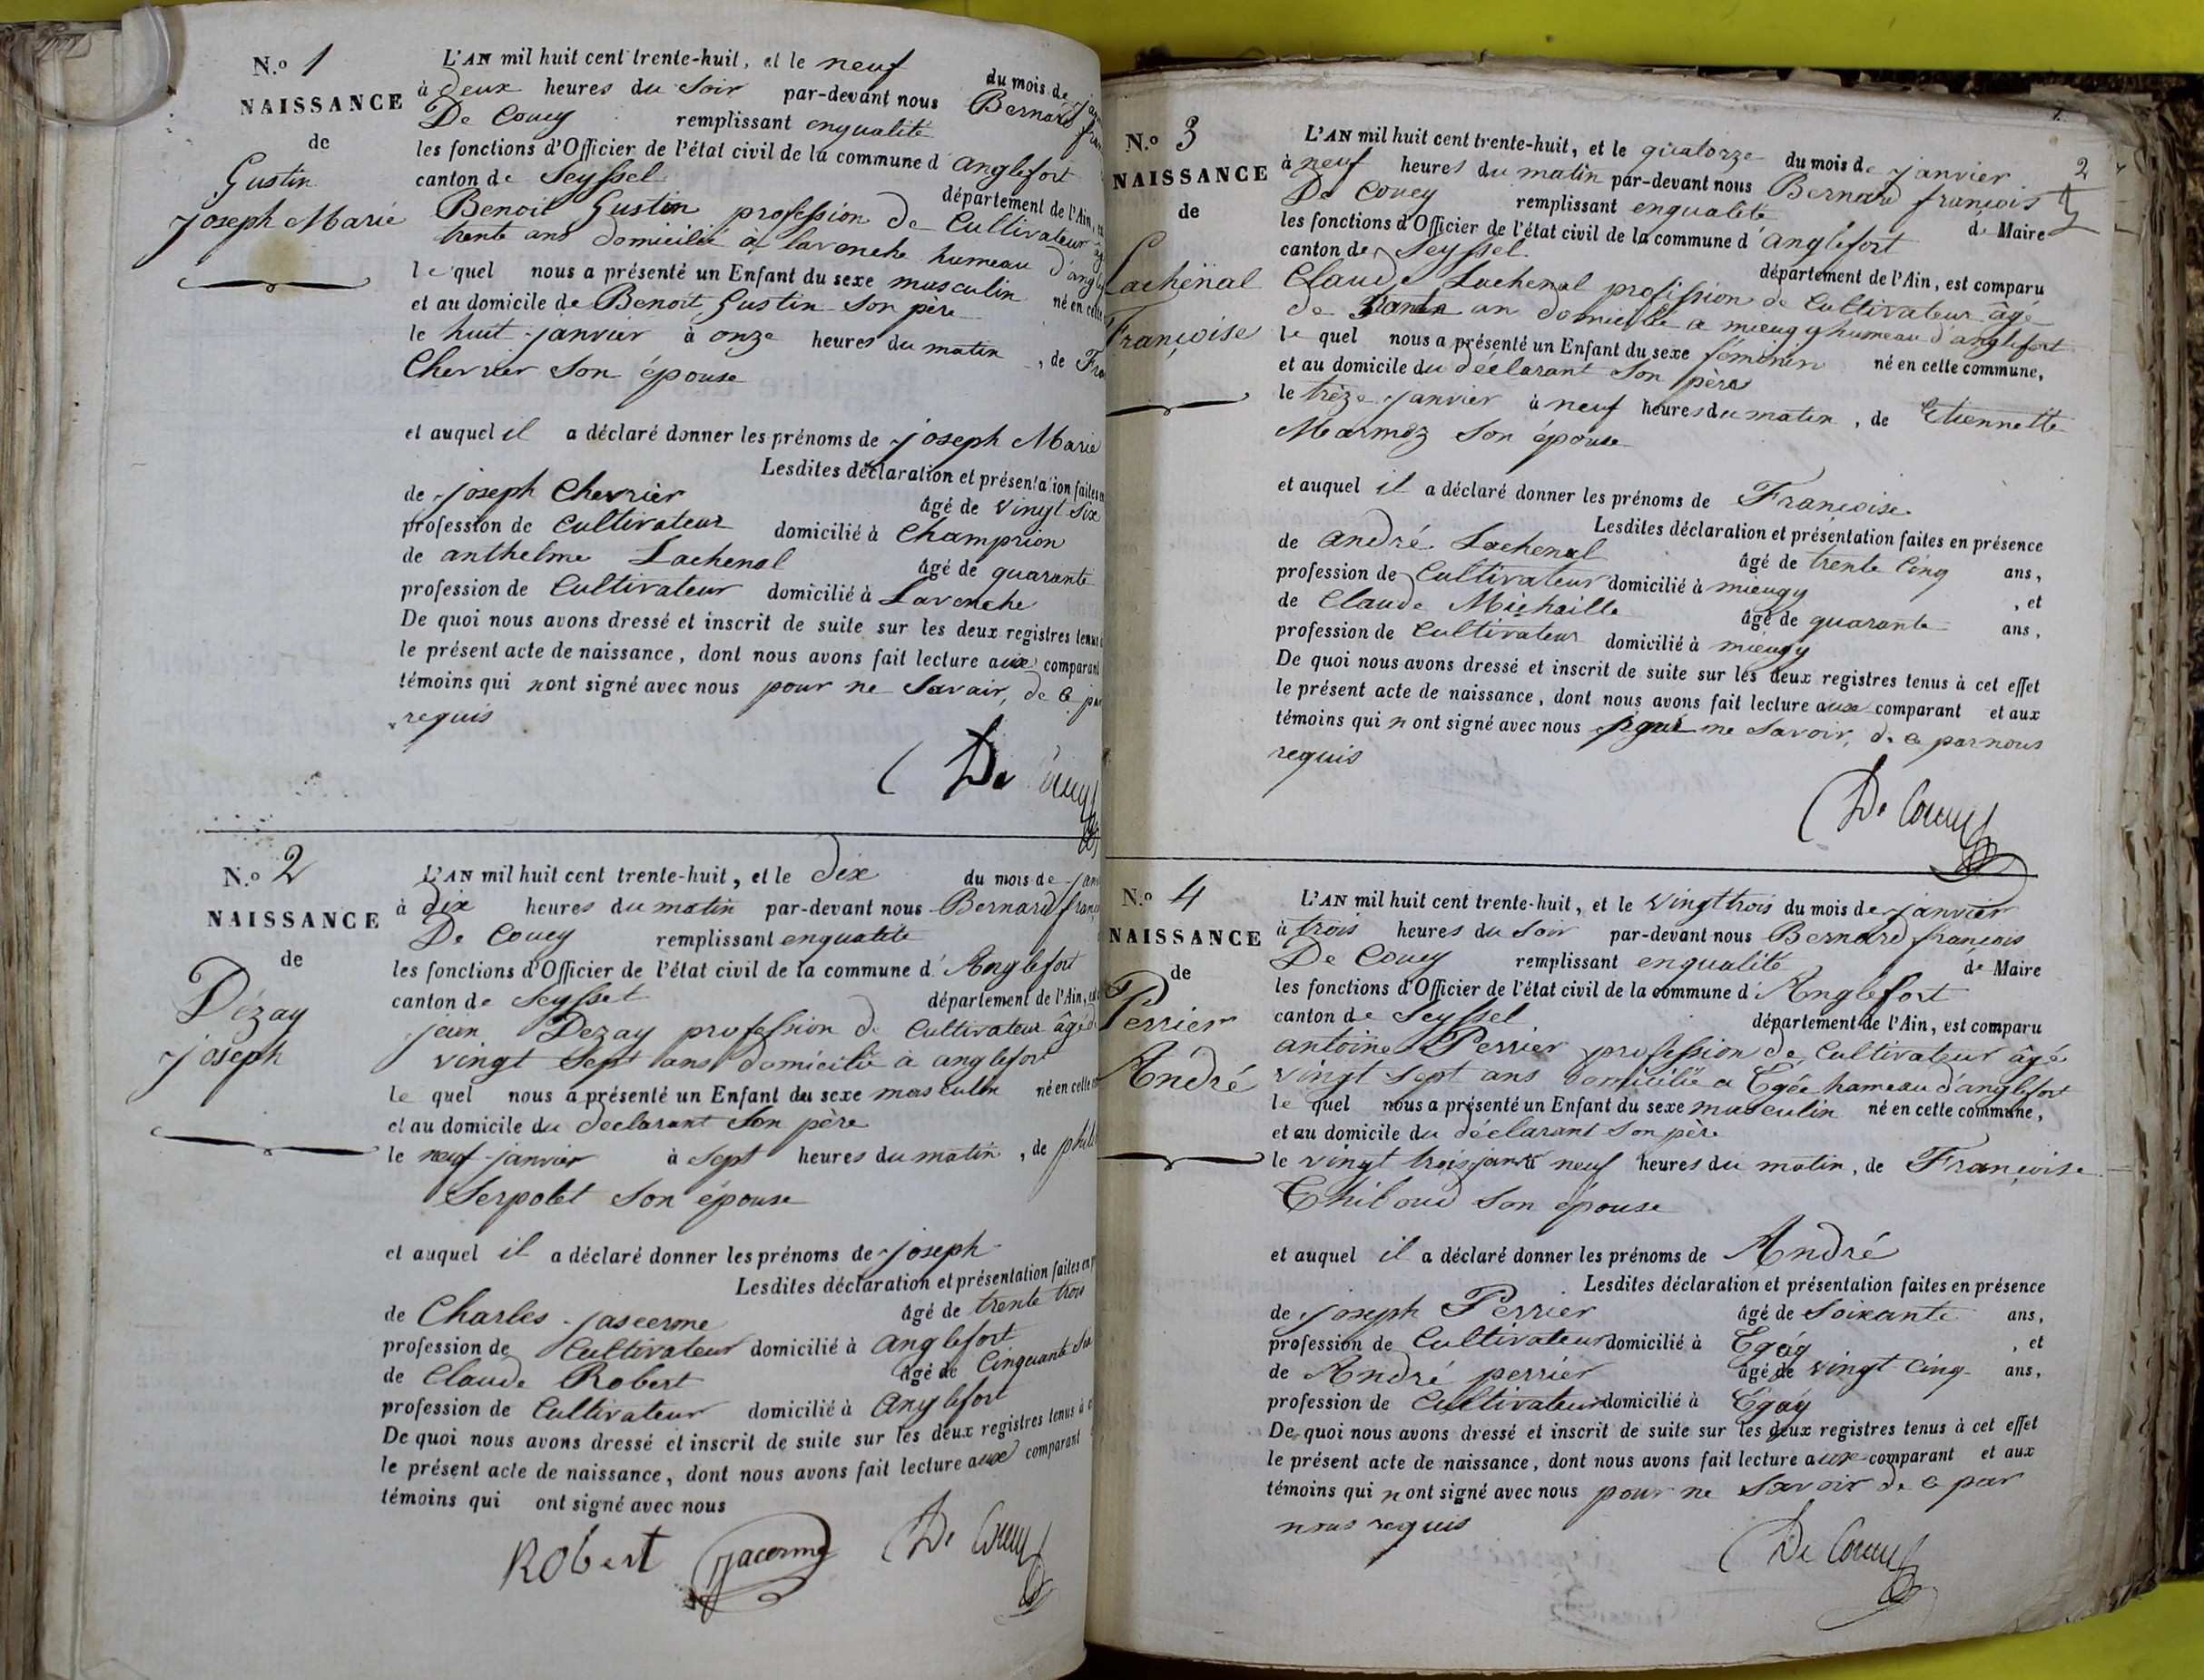 N.o 1
NAISSANCE
de
Gustin
Joseph Marie
L'AN mil huit cent trente-huit, et le neuf du mois de
à deux heures du Soir par-devant nous Bernard
De Coucy remplissant enqualité
les fonctions d'Officier de l'état civil de la commune d'anglefort
canton de Seyssel département de l'Ain,
Benoit Gustin profession de Cultivateur
trente ans domicilié à lavanche humeau
le quel nous a présenté un Enfant du sexe masculin né en cette
et au domicile de Benoit Gustin Son père
le huit janvier à onze heures du matin, de
Chevrier Son épouse
et auquel il a déclaré donner les prénoms de joseph Marie
Lesdites déclaration et présentation faites
de joseph Chevrier âgé de vingt Six
profession de Cultivateur domicilié à Champrion
de anthelme Lachenal âgé de quarante
profession de Cultivateur domicilié à Lavanche
De quoi nous avons dressé et inscrit de suite sur les deux registres tenus
le présent acte de naissance, dont nous avons fait lecture aux comparant
témoins qui n'ont signé avec nous pour ne Savoir, de ce
requis
De Coucy
N.o 2
NAISSANCE
de
Dézay
joseph
L'AN mil huit cent trente-huit, et le dix du mois de
à dix heures du matin par-devant nous Bernard
De Coucy remplissant enqualité
les fonctions d'Officier de l'état civil de la commune d'Anglefort
canton de Seyssel département de l'Ain,
jean Dezay profession de Cultivateur âgé
vingt Sept ans domicilié à anglefort
le quel nous a présenté un Enfant du sexe masculin né en cette
et au domicile du déclarant Son père
le neuf janvier à Sept heures du matin, de
Serpolet Son épouse
et auquel il a déclaré donner les prénoms de joseph
Lesdites déclaration et présentation faites
de Charles jascerme âgé de trente trois
profession de Cultivateur domicilié à anglefort
de Claude Robert âgé de Cinquante
profession de Cultivateur domicilié à Anglefort
De quoi nous avons dressé et inscrit de suite sur les deux registres tenus à
le présent acte de naissance, dont nous avons fait lecture aux comparant
témoins qui ont signé avec nous
Robert De Coucy
2
N.o 3
NAISSANCE
de
Lachenal
Françoise
L'AN mil huit cent trente-huit, et le quatorze du mois de janvier
à neuf heures du matin par-devant nous Bernard françois
De Coucy remplissant enqualité de Maire
les fonctions d'Officier de l'état civil de la commune d'anglefort
canton de Seyssel département de l'Ain, est comparu
Claude Lachenal profession de Cultivateur âgé
de an domicilié a mieugy humeau d'anglefort
le quel nous a présenté un Enfant du sexe féminin né en cette commune,
et au domicile du déclarant Son père
le trèze janvier à neuf heures du matin, de Etiennette
Marmoz Son épouse
et auquel il a déclaré donner les prénoms de Françoise
Lesdites déclaration et présentation faites en présence
de andré Lachenal âgé de trente Cinq ans,
profession de Cultivateur domicilié à mieugy, et
de Claude Michaille âgé de quarante ans,
profession de Cultivateur domicilié à mieugy
De quoi nous avons dressé et inscrit de suite sur les deux registres tenus à cet effet
le présent acte de naissance, dont nous avons fait lecture aux comparant et aux
témoins qui n ont signé avec nous pour ne Savoir, de ce par nous
requis
De Coucy
N.o 4
NAISSANCE
de
Perrier
André
L'AN mil huit cent trente-huit, et le vingttrois du mois de janvier
à trois heures du Soir par-devant nous Bernard françois
De Coucy remplissant enqualité de Maire
les fonctions d'Officier de l'état civil de la commune d'Anglefort
canton de Seyssel département de l'Ain, est comparu
antoine Perrier profession de Cultivateur âgé
vingt Sept ans domicilié a Egée hameau d'anglefort
le quel nous a présenté un Enfant du sexe masculin né en cette commune,
et au domicile du déclarant Son père
le vingt trois janv à neuf heures du matin, de Françoise
Thiboud Son épouse
et auquel il a déclaré donner les prénoms de André
Lesdites déclaration et présentation faites en présence
de joseph Perrier âgé de Soixante ans,
profession de Cultivateur domicilié à Egéy, et
de André perrier âgé de vingt Cinq ans,
profession de Cultivateur domicilié à Egéy
De quoi nous avons dressé et inscrit de suite sur les deux registres tenus à cet effet
le présent acte de naissance, dont nous avons fait lecture aux comparant et aux
témoins qui n ont signé avec nous pour ne Savoir de ce par
nous requis
De Coucy